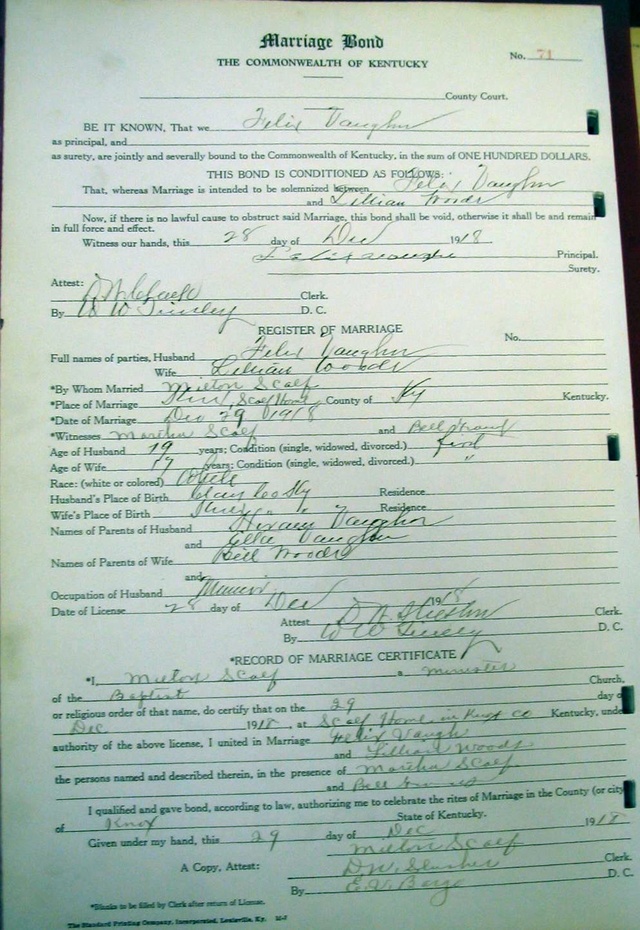 Marriage Bond
THE COMMONWEALTH OF KENTUCKY
No. 71
County Court.
BE IT KNOWN, That we Felix Vaughn
as principal, and
as surety, are jointly and severally bound to the Commonwealth of Kentucky, in the sum of ONE HUNDRED DOLLARS.
THIS BOND IS CONDITIONED AS FOLLOWS:
That, whereas Marriage is intended to be solemnized between Felix Vaughn
and Lillian Woods
Now, if there is no lawful cause to obstruct said Marriage, this bond shall be void, otherwise it shall be and remain
in full force and effect.
Witness our hands, this 28 day of Dec 1918
Felix Vaughn Principal.
Surety.
Attest:
Clerk.
By W W Tinsley D. C.
REGISTER OF MARRIAGE
No.
Full names of parties, Husband Felix Vaughn
Wife Lillian Woods
*By Whom Married Milton Scalf
*Place of Marriage Scalf Home County of Ky Kentucky.
*Date of Marriage Dec 29 1918
*Witnesses Martha Scalf and Bell
Age of Husband 19 years; Condition (single, widowed, divorced.) first
Age of Wife 17 years; Condition (single, widowed, divorced.) "
Race: (white or colored) White
Husband's Place of Birth Clay Co Ky Residence
Wife's Place of Birth Knox " " Residence
Names of Parents of Husband Vaughn
and Vaughn
Names of Parents of Wife Bill Woods
and
Occupation of Husband Miner
Date of License 28 day of Dec 1918
Attest Clerk.
By W W Tinsley D. C.
*RECORD OF MARRIAGE CERTIFICATE
*I, Milton Scalf a minister
of the Baptist Church,
or religious order of that name, do certify that on the 29 day of
Dec 1918, at Scalf Home in Knox Co Kentucky, under
authority of the above license, I united in Marriage Felix Vaughn
and Lillian Woods
the persons named and described therein, in the presence of Martha Scalf
and Bell
I qualified and gave bond, according to law, authorizing me to celebrate the rites of Marriage in the County (or city)
of Knox State of Kentucky.
Given under my hand, this 29 day of Dec 1918
Milton Scalf
A Copy, Attest: D.W. Slusher Clerk.
By E.V. D. C.
*Blanks to be filled by Clerk after return of License.
The Standard Printing Company, Incorporated, Louisville, Ky.